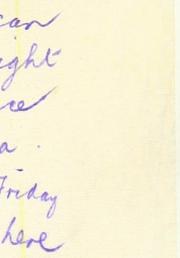 can
ight
ce
a .
Friday
here